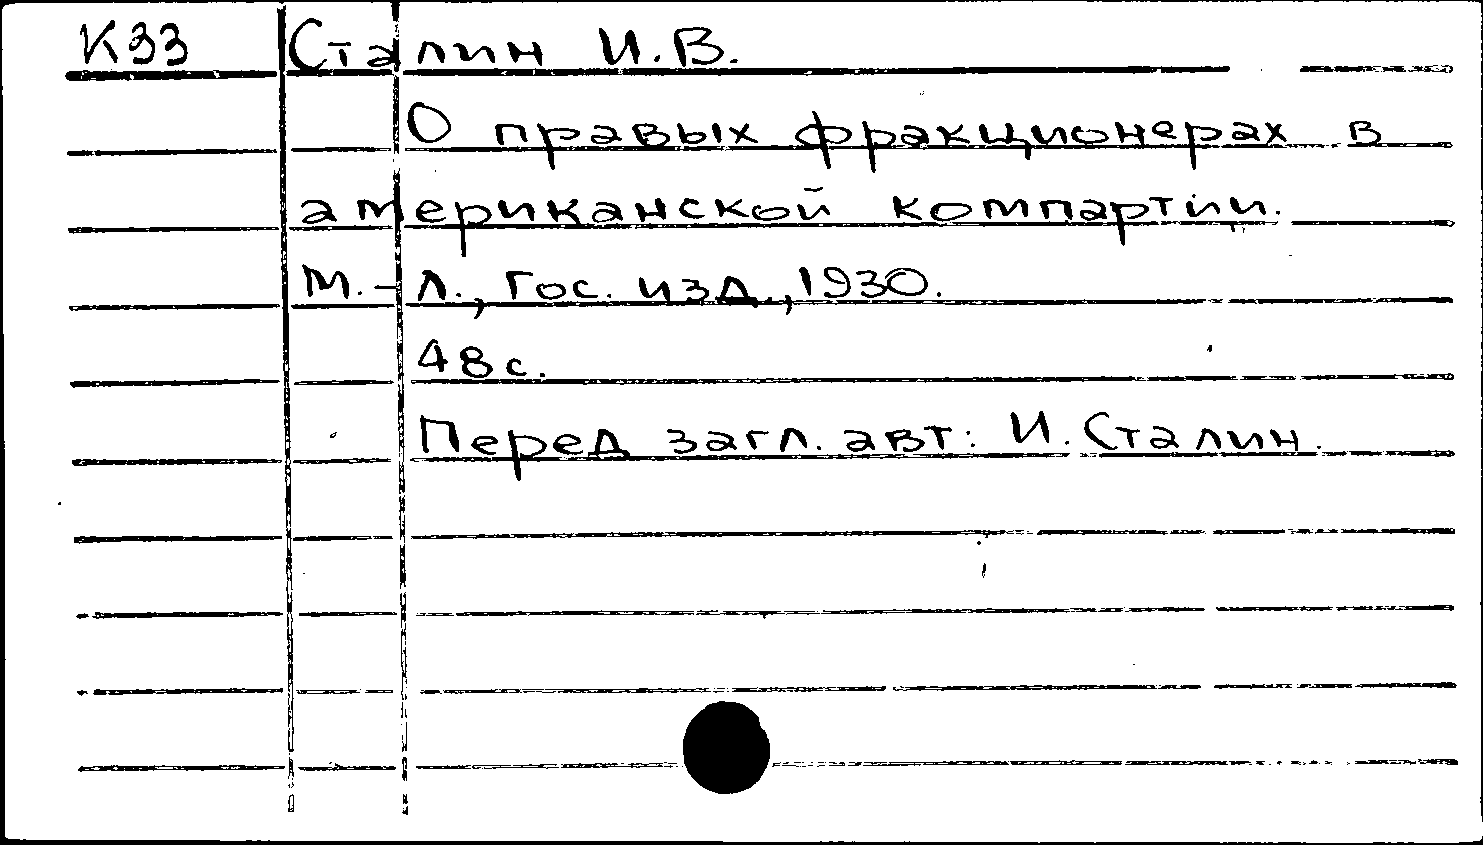 К33 Сталин И.В.
О правых фракционерах в
американской компартии.
М.-Л., Гос. изд., 1930.
48 с.
Перед загл. авт: И. Сталин.